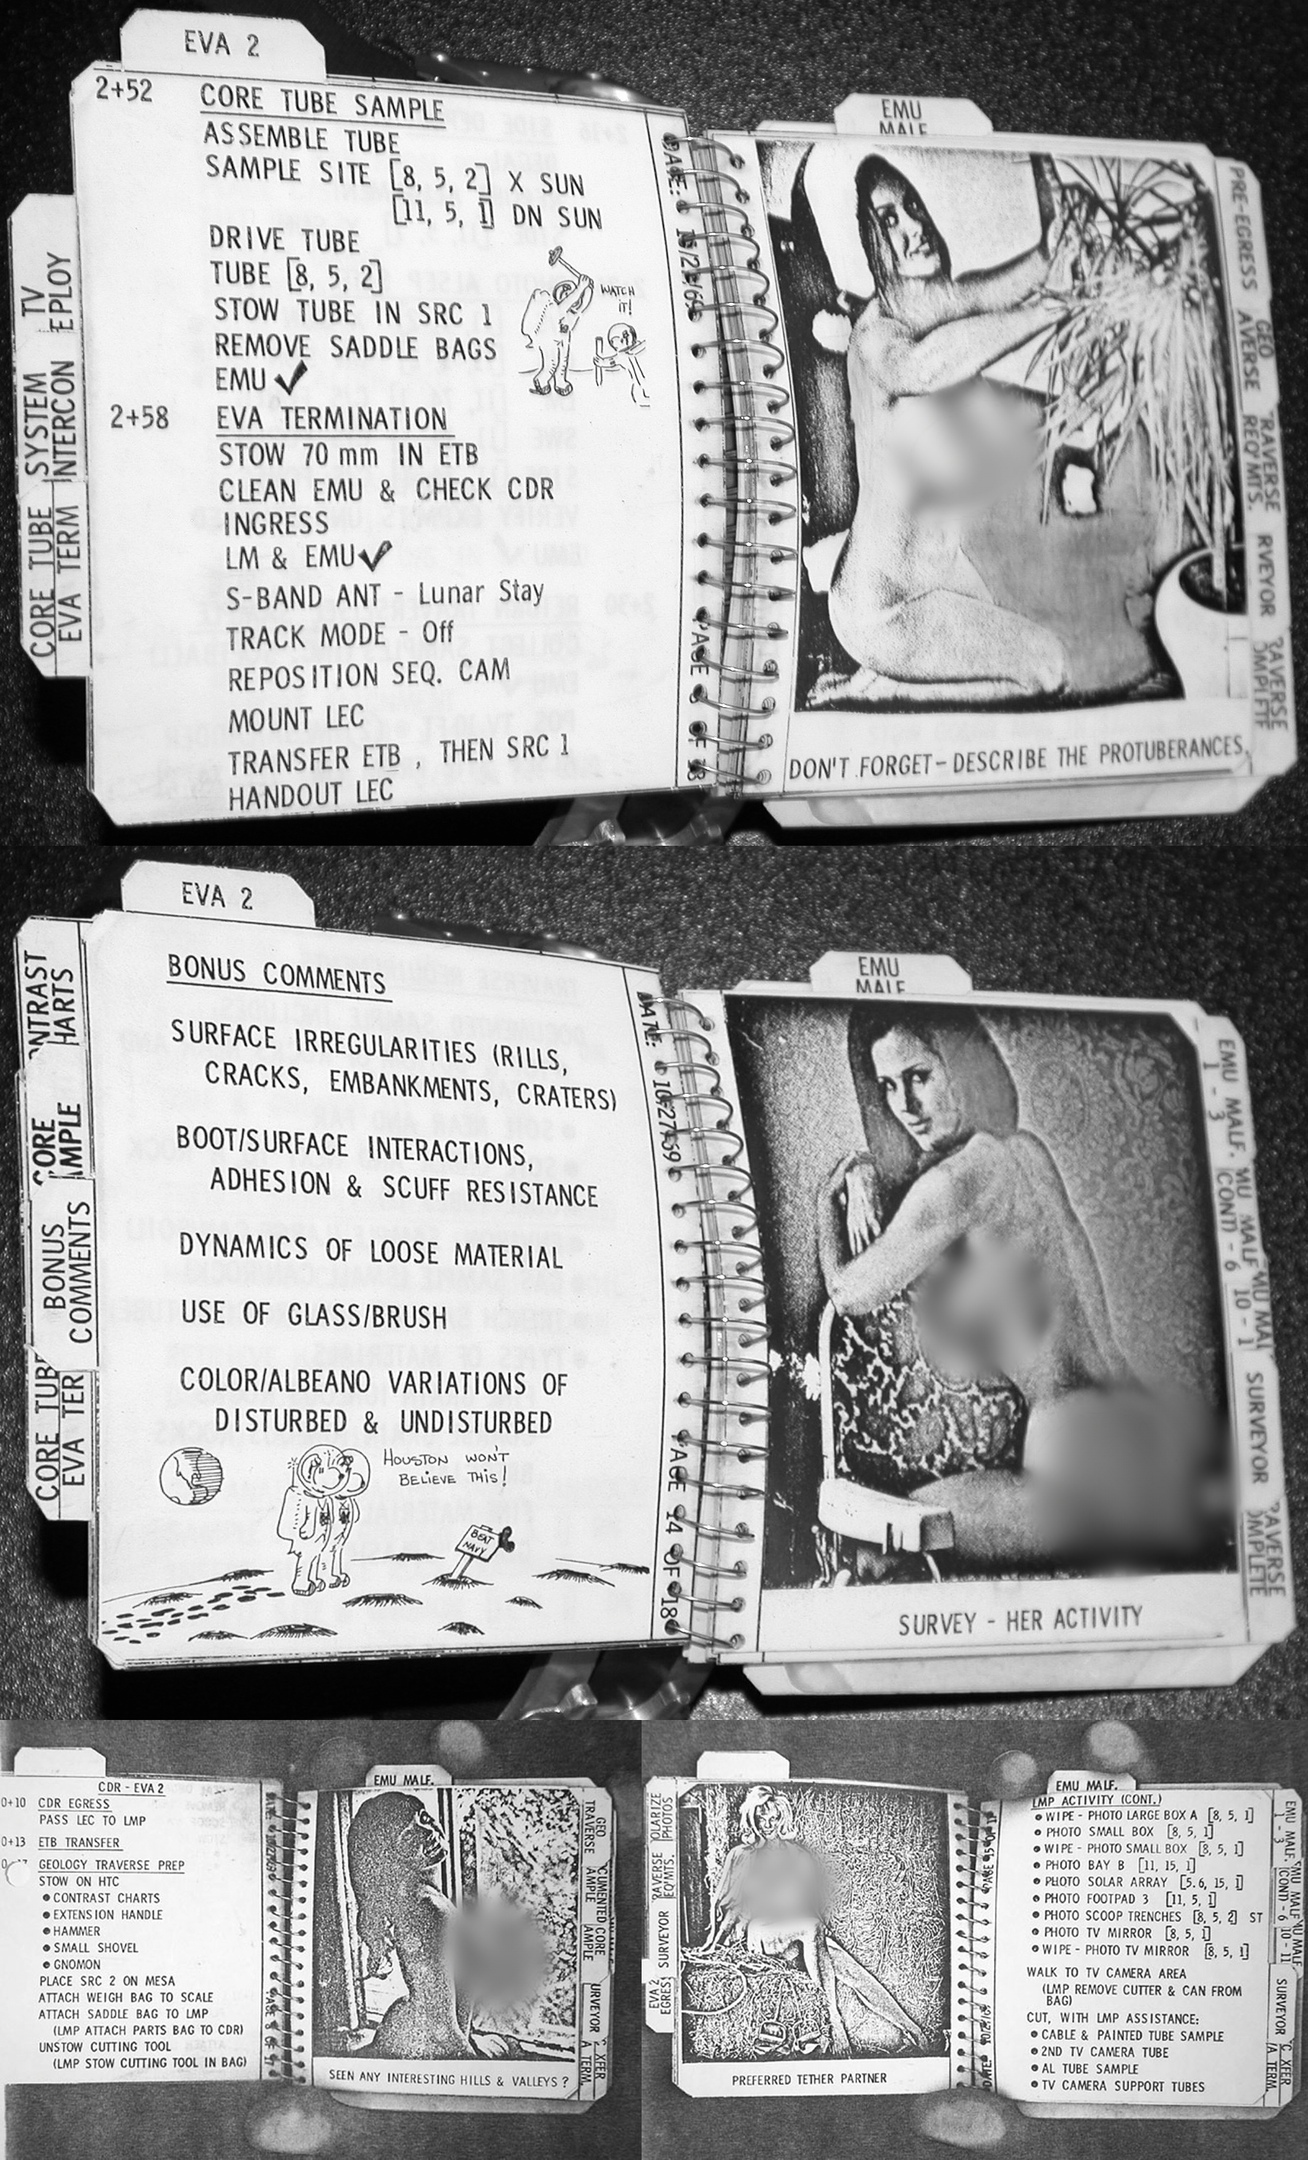 EVA 2
2+52 CORE TUBE SAMPLE
ASSEMBLE TUBE
SAMPLE SITE [8, 5, 2] X SUN
[11, 5, 1] DN SUN
DRIVE TUBE
TUBE [8, 5, 2]
STOW TUBE IN SRC 1
REMOVE SADDLE BAGS
EMU ✓
WATCH
IT!
2+58 EVA TERMINATION
STOW 70 mm IN ETB
CLEAN EMU & CHECK CDR
INGRESS
LM & EMU ✓
S-BAND ANT - Lunar Stay
TRACK MODE - Off
REPOSITION SEQ. CAM
MOUNT LEC
TRANSFER ETB , THEN SRC 1
HANDOUT LEC
TV
EPLOY
SYSTEM
INTERCON
CORE TUBE
EVA TERM
DATE:
EMU
MALF
PRE-EGRESS
GEO
AVERSE
RAVERSE
REQ'MTS.
RVEYOR
RAVERSE
OMPLETE
DON'T FORGET - DESCRIBE THE PROTUBERANCES.
EVA 2
BONUS COMMENTS
SURFACE IRREGULARITIES (RILLS,
CRACKS, EMBANKMENTS, CRATERS)
BOOT/SURFACE INTERACTIONS,
ADHESION & SCUFF RESISTANCE
DYNAMICS OF LOOSE MATERIAL
USE OF GLASS/BRUSH
COLOR/ALBEANO VARIATIONS OF
DISTURBED & UNDISTURBED
HOUSTON WON'T
BELIEVE THIS!
BEAT
NAVY
NTRAST
HARTS
CORE
AMPLE
BONUS
COMMENTS
CORE TUB
EVA TER
DATE: 10/27/69
PAGE 14 OF 18
EMU
MALF
EMU MALF.
1 - 3
MU MALF
(CONT) - 6
MU MAL
10 - 1
SURVEYOR
RAVERSE
OMPLETE
SURVEY - HER ACTIVITY
CDR - EVA 2
0+10 CDR EGRESS
PASS LEC TO LMP
0+13 ETB TRANSFER
GEOLOGY TRAVERSE PREP
STOW ON HTC
● CONTRAST CHARTS
● EXTENSION HANDLE
● HAMMER
● SMALL SHOVEL
● GNOMON
PLACE SRC 2 ON MESA
ATTACH WEIGH BAG TO SCALE
ATTACH SADDLE BAG TO LMP
(LMP ATTACH PARTS BAG TO CDR)
UNSTOW CUTTING TOOL
(LMP STOW CUTTING TOOL IN BAG)
EMU MALF.
GEO
TRAVERSE
CUMENTED
AMPLE
CORE
AMPLE
URVEYOR
C XFER
A TERM
SEEN ANY INTERESTING HILLS & VALLEYS ?
OLARIZE
PHOTOS
RAVERSE
EQ'MTS.
SURVEYOR
EVA 2
EGRES
PREFERRED TETHER PARTNER
EMU MALF.
LMP ACTIVITY (CONT.)
● WIPE - PHOTO LARGE BOX A [8, 5, 1]
● PHOTO SMALL BOX [8, 5, 1]
● WIPE - PHOTO SMALL BOX [8, 5, 1]
● PHOTO BAY B [11, 15, 1]
● PHOTO SOLAR ARRAY [5.6, 15, 1]
● PHOTO FOOTPAD 3 [11, 5, 1]
● PHOTO SCOOP TRENCHES [8, 5, 2] ST
● PHOTO TV MIRROR [8, 5, 1]
● WIPE - PHOTO TV MIRROR [8, 5, 1]
WALK TO TV CAMERA AREA
(LMP REMOVE CUTTER & CAN FROM
BAG)
CUT, WITH LMP ASSISTANCE:
● CABLE & PAINTED TUBE SAMPLE
● 2ND TV CAMERA TUBE
● AL TUBE SAMPLE
● TV CAMERA SUPPORT TUBES
EMU MALF.
1 - 3
MU MALF
(CONT) - 6
MU MALF
10 - 11
SURVEYOR
C XFER
A TERM